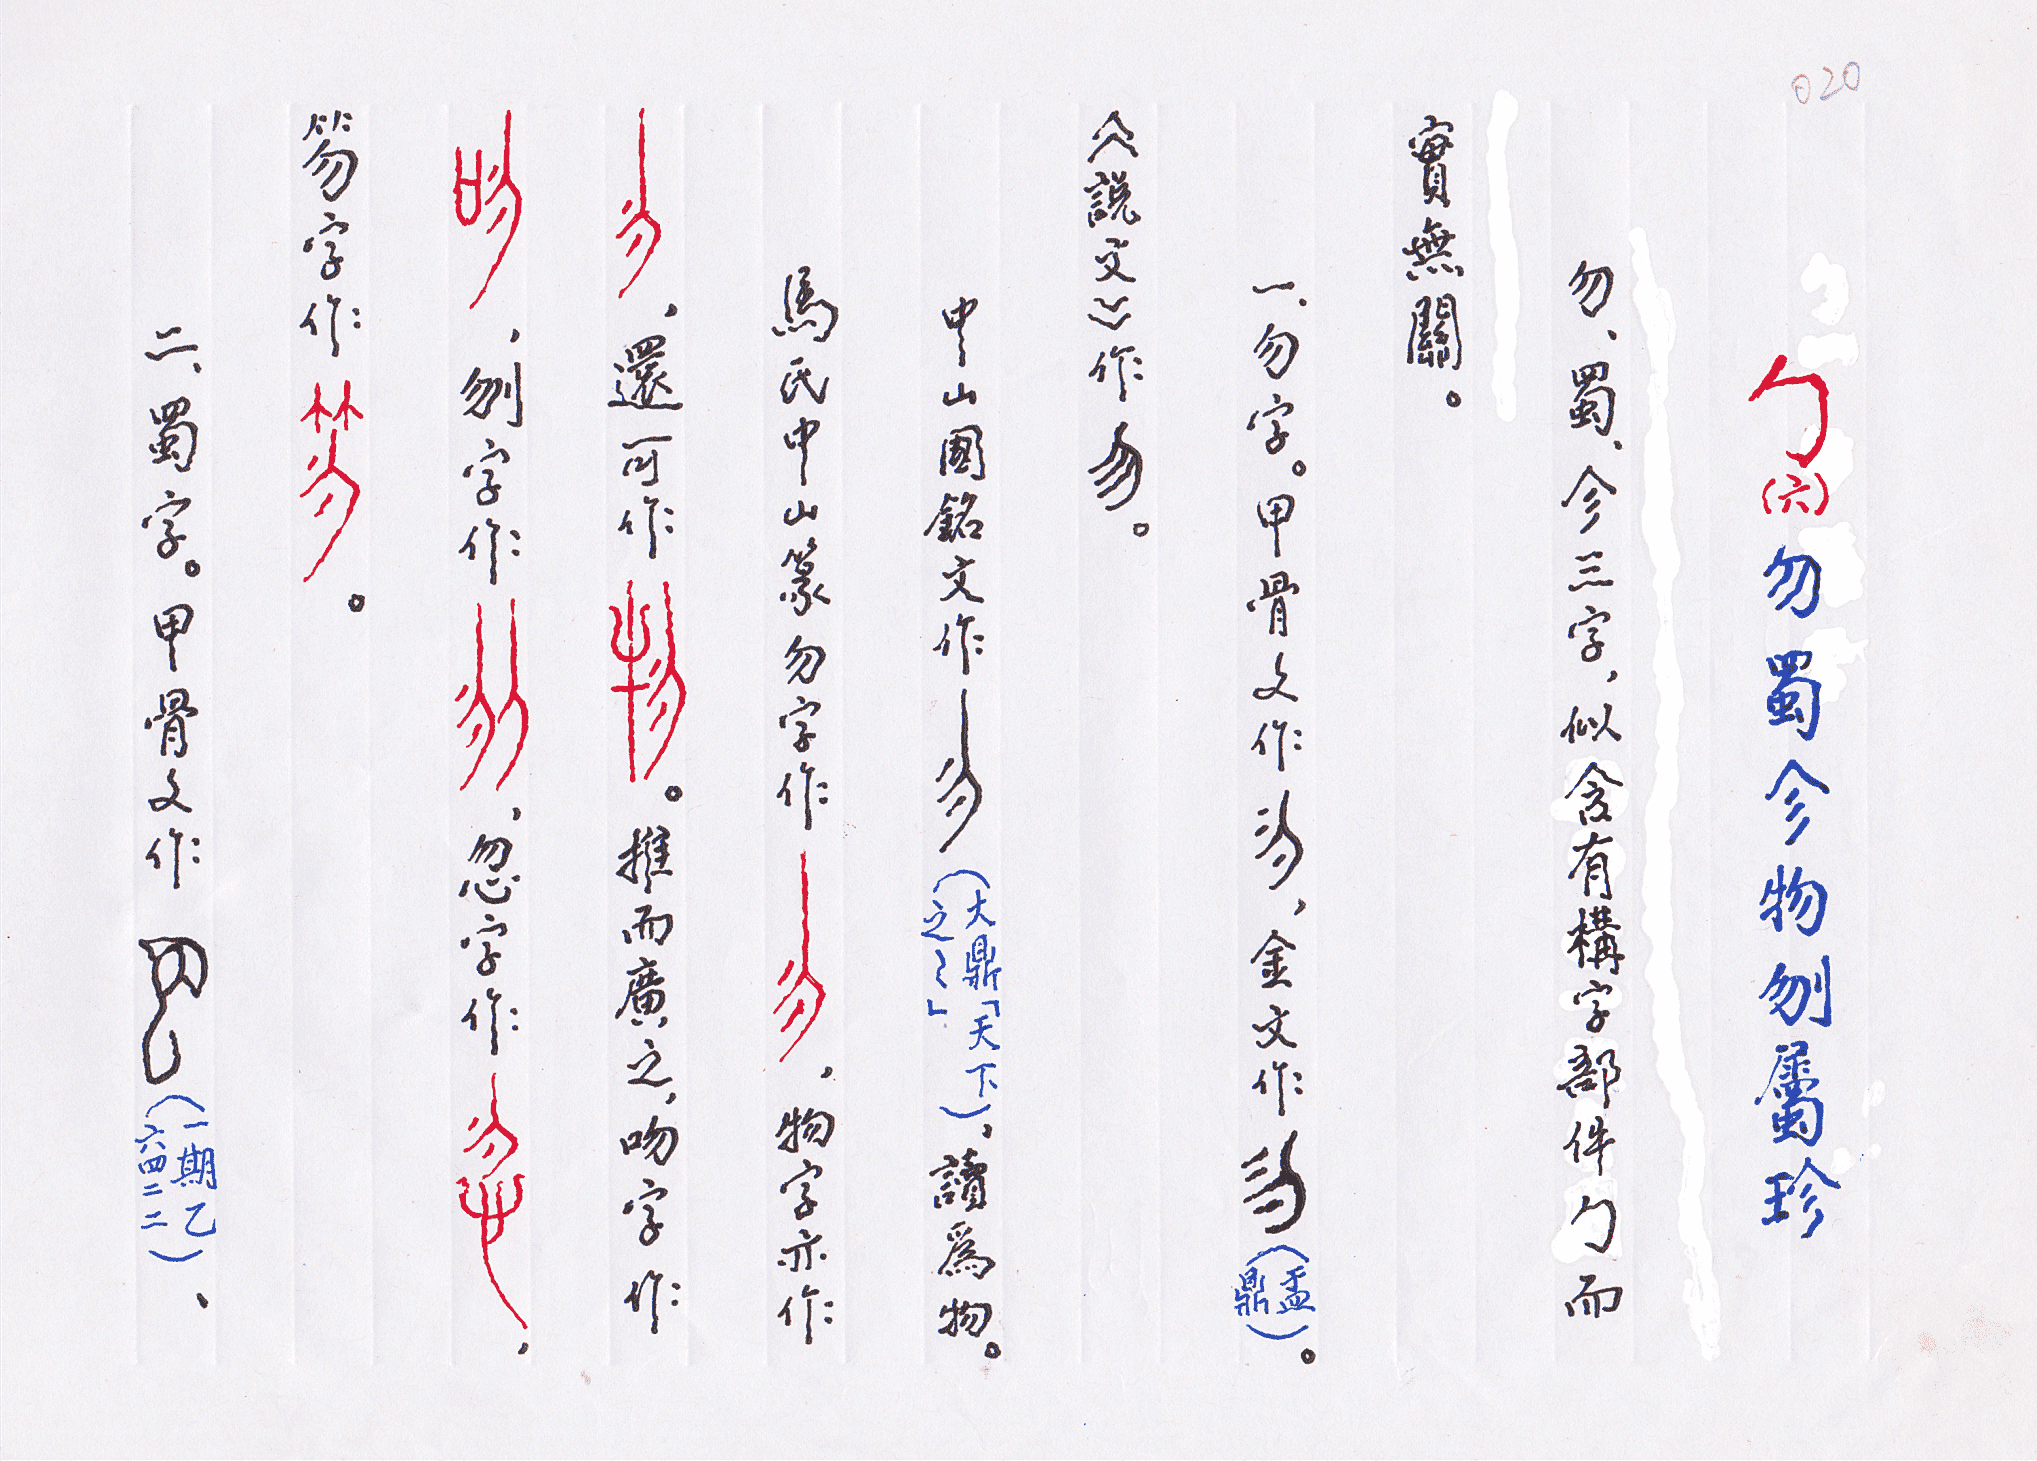 020
勹（六）勿蜀㐱物刎屬珍
勿、蜀、㐱三字，似含有構字部件勹而
實無關。
一、勿字。甲骨文作勿，金文作勿（盂鼎）。
《說文》作勿。
中山國銘文作勿（大鼎「天下之勿」），讀爲物。
馬氏中山篆勿字作勿，物字亦作
勿，還可作物。推而廣之，吻字作
吻，刎字作刎，忽字作忽，
笏字作笏。
二、蜀字。甲骨文作蜀（一期乙六四二二）、